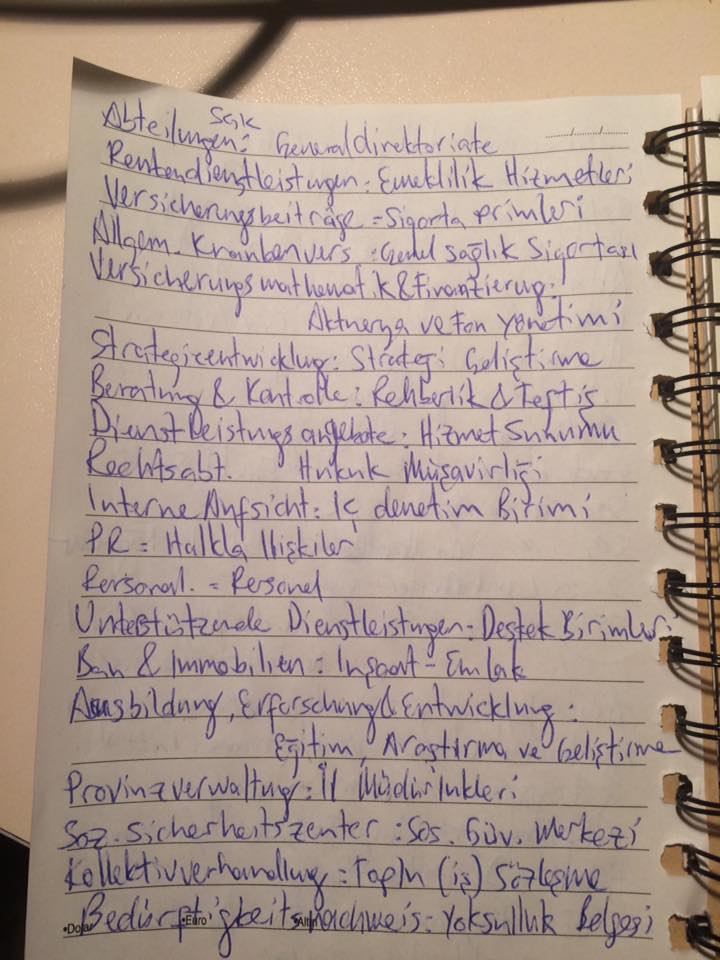 SGK
Abteilungen: Generaldirektoriate
Rentendienstleistungen: Emeklilik Hizmetleri
Versicherungsbeiträge = Sigorta primleri
Allgem. Krankenvers: Genel Sağlık Sigortası
Versicherungsmathematik & Finanzierung:
Aktuerya ve Fon Yönetimi
Strategieentwicklung: Strateji Geliştirme
Beratung & Kontrolle: Rehberlik & Teftiş
Dienstleistungsangebote: Hizmet Sunumu
Rechtsabt. Hukuk Müşavirliği
Interne Aufsicht: İç denetim Birimi
PR = Halkla İlişkiler
Personal. = Personel
Unterstützende Dienstleistungen: Destek Birimleri
Bau & Immobilien: İnşaat - Emlak
Ausbildung, Erforschung & Entwicklung:
Eğitim, Araştırma ve Geliştirme
Provinzverwaltung: İl Müdürlükleri
Soz. Sicherheitszenter: Sos. Güv. Merkezi
Kollektivverhandlung: Toplu (iş) Sözleşme
Bedürftigkeitsnachweis: Yoksulluk Belgesi
•Dolar •Euro •Altın